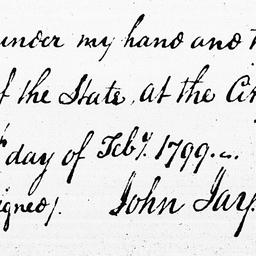 under my hand and
of the State, at the
day of Feby. 1799.
igned). John Jay.